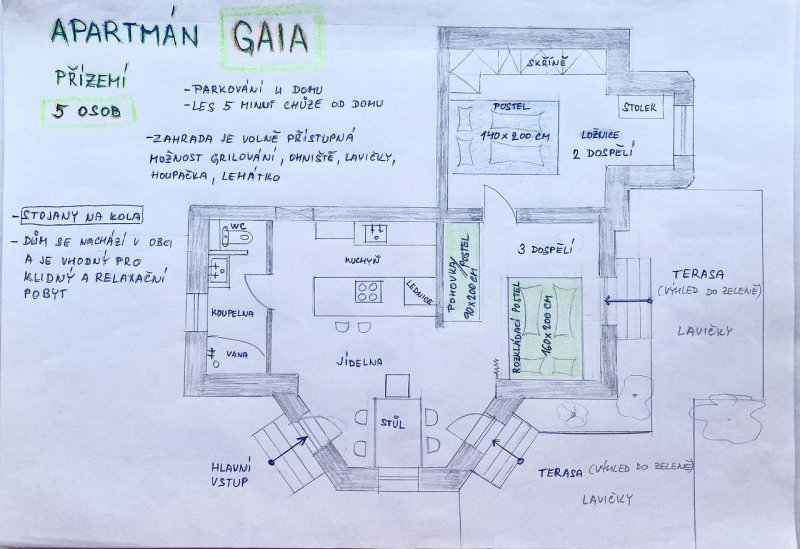 APARTMÁN GAIA
PŘÍZEMÍ
5 OSOB
- PARKOVÁNÍ U DOMU
- LES 5 MINUT CHŮZE OD DOMU
- ZAHRADA JE VOLNĚ PŘÍSTUPNÁ
MOŽNOST GRILOVÁNÍ, OHNIŠTĚ, LAVIČKY,
HOUPAČKA, LEHÁTKO
- STOJANY NA KOLA
- DŮM SE NACHÁZÍ V OBCI
A JE VHODNÝ PRO
KLIDNÝ A RELAXAČNÍ
POBYT
SKŘÍNĚ
POSTEL
140 x 200 CM
STOLEK
LOŽNICE
2 DOSPĚLÍ
WC
KOUPELNA
VANA
KUCHYŇ
LEDNICE
JÍDELNA
STŮL
POHOVKA/POSTEL
90 x 200 CM
3 DOSPĚLÍ
ROZKLÁDACÍ POSTEL
160 x 200 CM
TERASA
(VÝHLED DO ZELENĚ)
LAVIČKY
HLAVNÍ
VSTUP
TERASA (VÝHLED DO ZELENĚ)
LAVIČKY